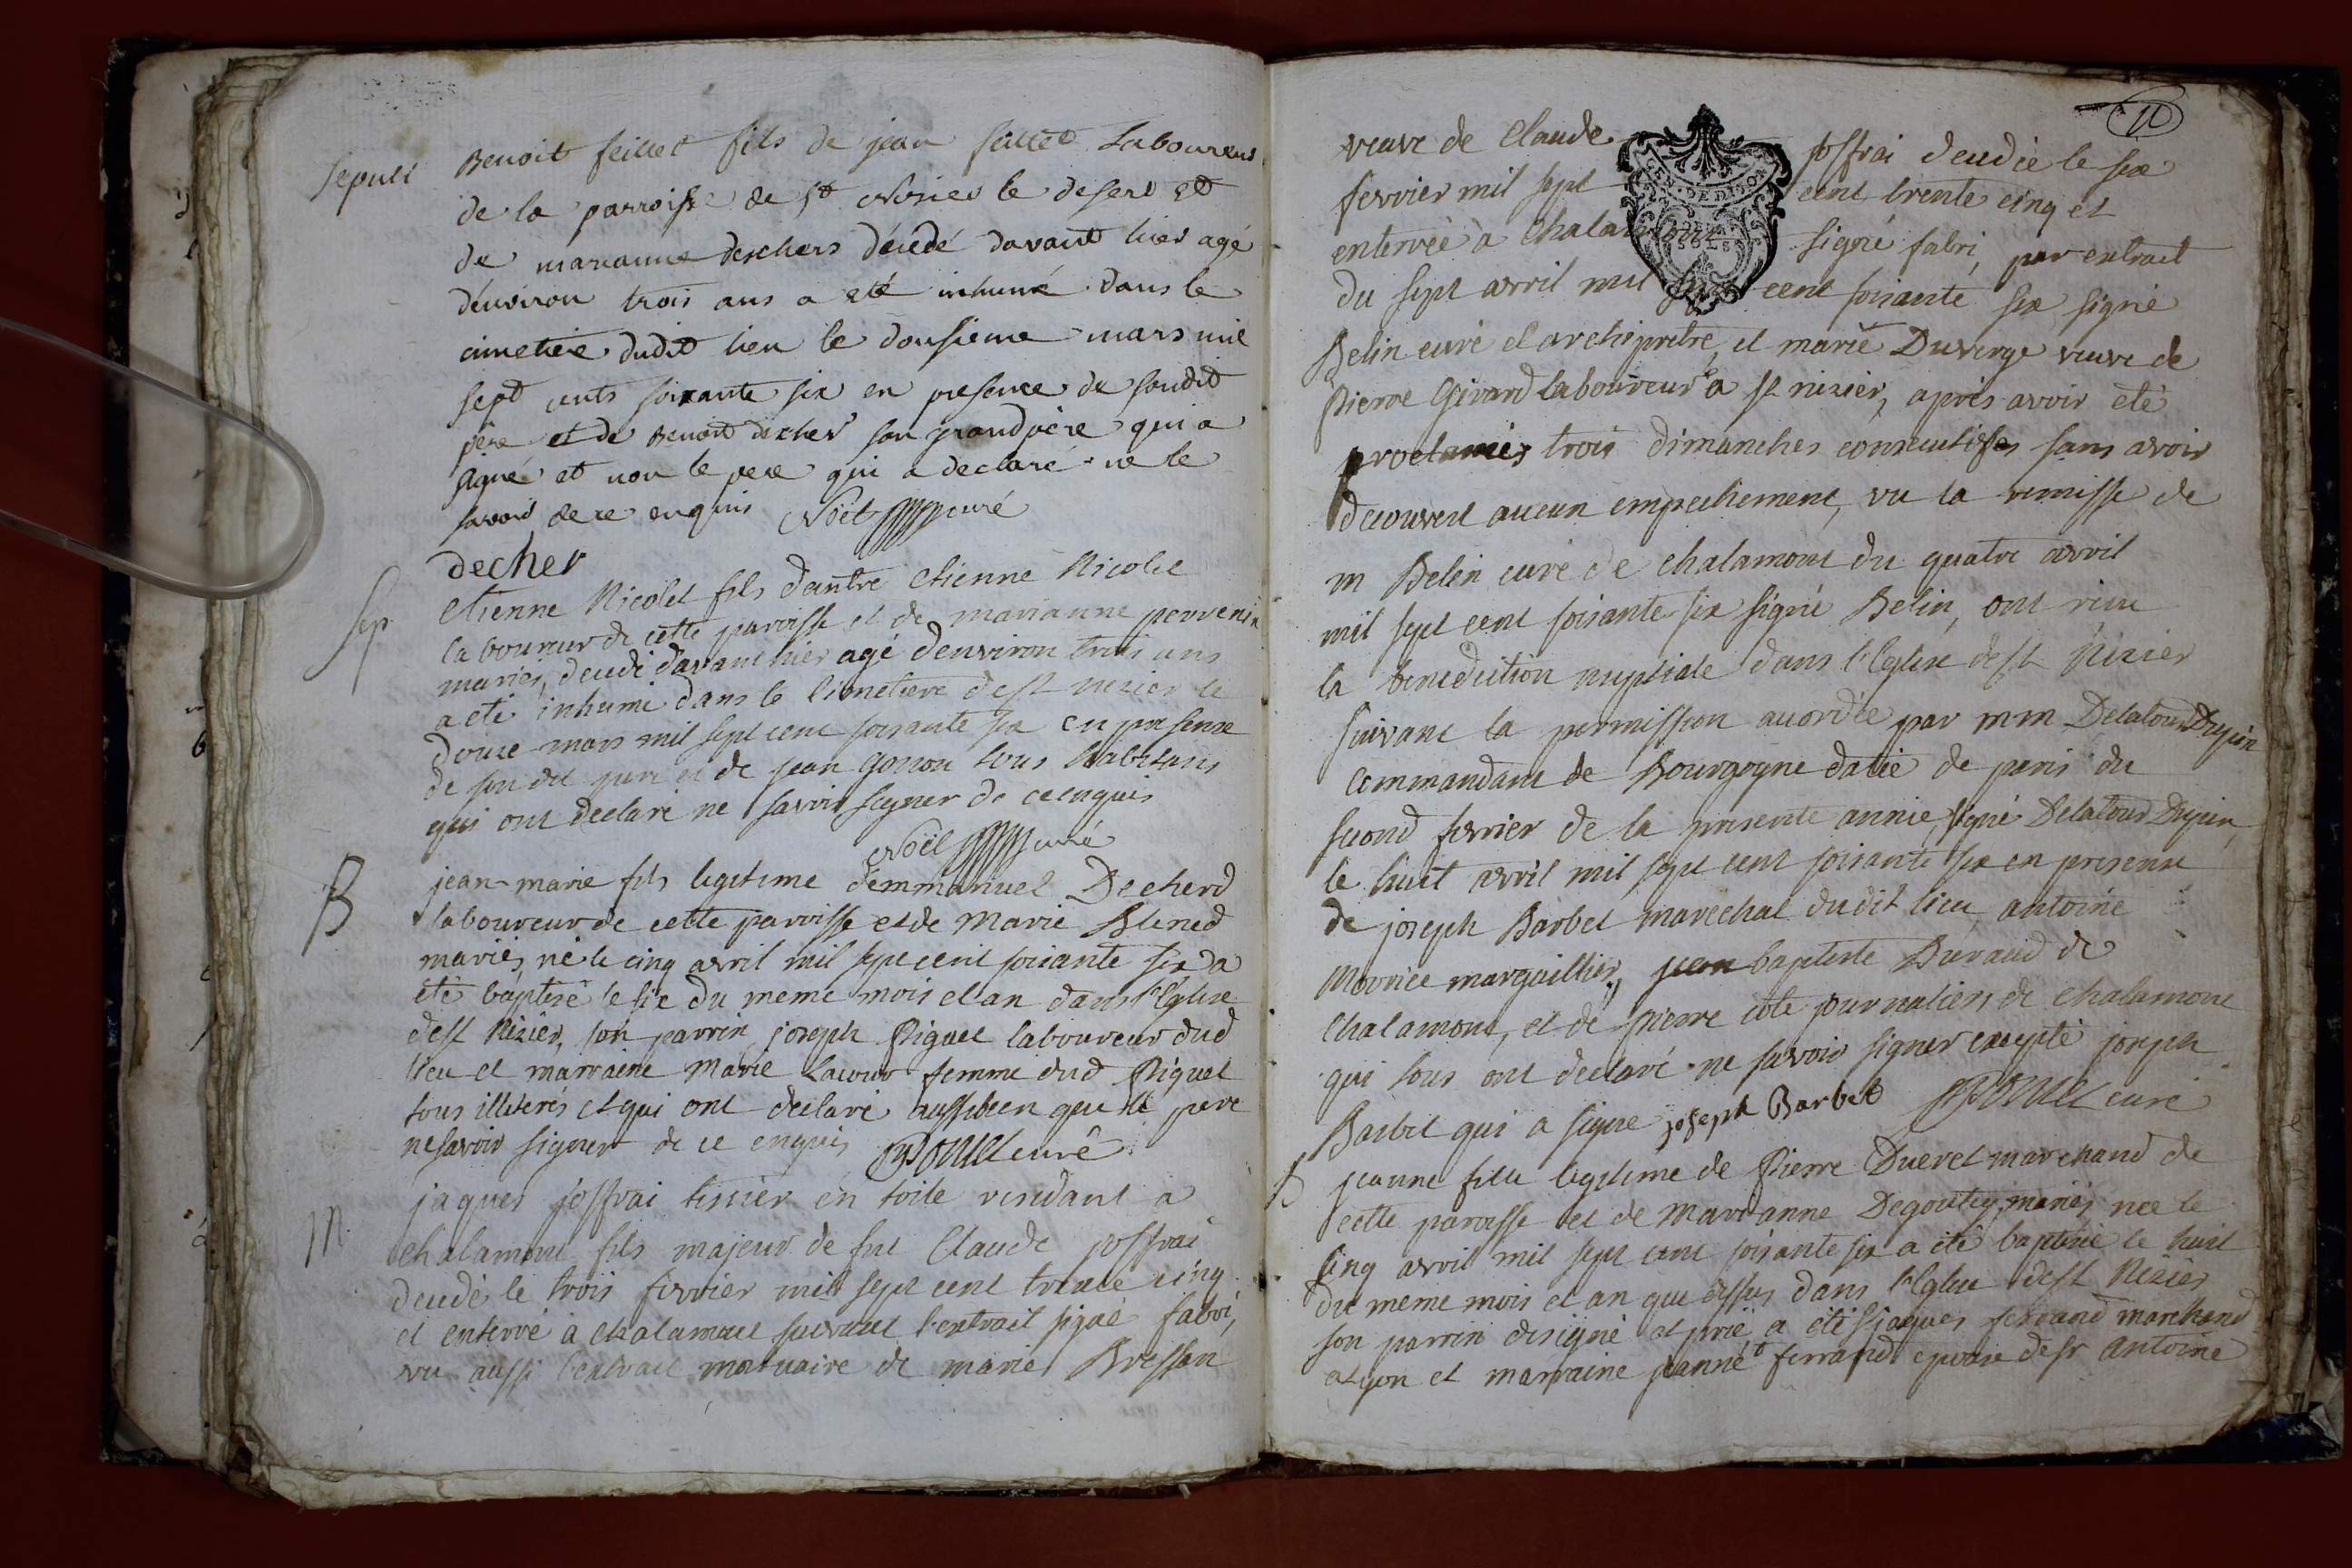 sepult Benoit feillet fils de jean feillet Laboureur
de la parroisse de st Nosier le desert et
de marianne deschers décédé davant hier agé
d'environ trois ans a eté inhumé dans le
cimetiere dudit lieu le dousieme mars mil
sept cents soixante six en presence de soudit
père et de Benoit decher son grand père qui a
signé et non le pere qui a declaré ne le
savoir de ce enquis Noël curé
decher
Sep Etienne Nicolet fils d'autre Etienne Nicolet
laboureur de cette paroisse et de marianne perrenin
mariés, decedé davant hier agé d'environ trois ans
a eté inhumé dans le Cimetiere de st nizier le
douze mars mil sept cent soisante six en presense
de son dit pere et de jean gonon tous habitans
qui ont declaré ne savoir signer de ce enquis
Noël curé
B jean-marie fils legitime d'emmanuel Decherd
laboureur de cette paroisse et de Marie Blened
mariés, né le cinq avril mil sept cent soisante six a
été baptisé le six du meme mois et an dans l'Eglise
de st Nizier, son parrin joseph Piquet laboureur dud
lieu et marraine Marie Lacour femme dud Piquet
tous illiterés et qui ont declaré aussi bien que le pere
ne savoir signer de ce enquis curé
M. jaques joffrai tissier en toile residant a
chalamont fils majeur de feu Claude joffrai
decedé le trois fevrier mil sept cent trente cinq
et enterré à chalamont suivant l'extrait signé fabri,
vu aussi l'extrait mortuaire de marie Bressan
11
veuve de Claude joffrai decedée le six
fevrier mil sept cent trente cinq et
enterrée a Chalamont signé fabri, par extrait
GEN. DE DIJON
du sept avril mil sept cent soisante six signé
Belin curé et archiprêtre, et marie Duverge veuve de
Pierre Girard laboureur a st nizier, après avoir eté
proclamés trois dimanches consecutifes sans avoir
decouvert aucun empechement, vu la remisse de
m Belin curé de chalamont du quatre avril
mil sept cent soisante six signé Belin, ont recu
la benediction nuptiale dans l'Eglise de st Nizier
suivant la permission accordée par mm Delatour Dupin
commandant de Bourgogne datée de paris du
second fevrier de la presente année, signé Delatour Dupin,
le huit avril mil sept cent soisante six en presense
de joseph Barbet maréchal dudit lieu antoine
Morrice margaillier, jean baptiste Duraud de
Chalamont, et de pierre cote journaliers de chalamont
qui tous ont declaré ne savoir signer excepté joseph
Barbet qui a signé joseph Barbet curé
B jeanne fille legitime de Pierre Ducret marchand de
cette paroisse et de Marianne Degoutey mariés, née le
cinq avril mil sept cent soisante six a été baptisée le huit
du meme mois et an que dessus dans l'Eglise de st Nizier
son parrin designé et prié a été sr jaques ferrand marchand
a Lyon et marraine jeanne ferrand epouse de sr Antoine